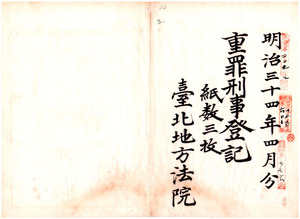 明治三十四年四月分
重罪刑事登記
紙数三枚
臺北地方法院